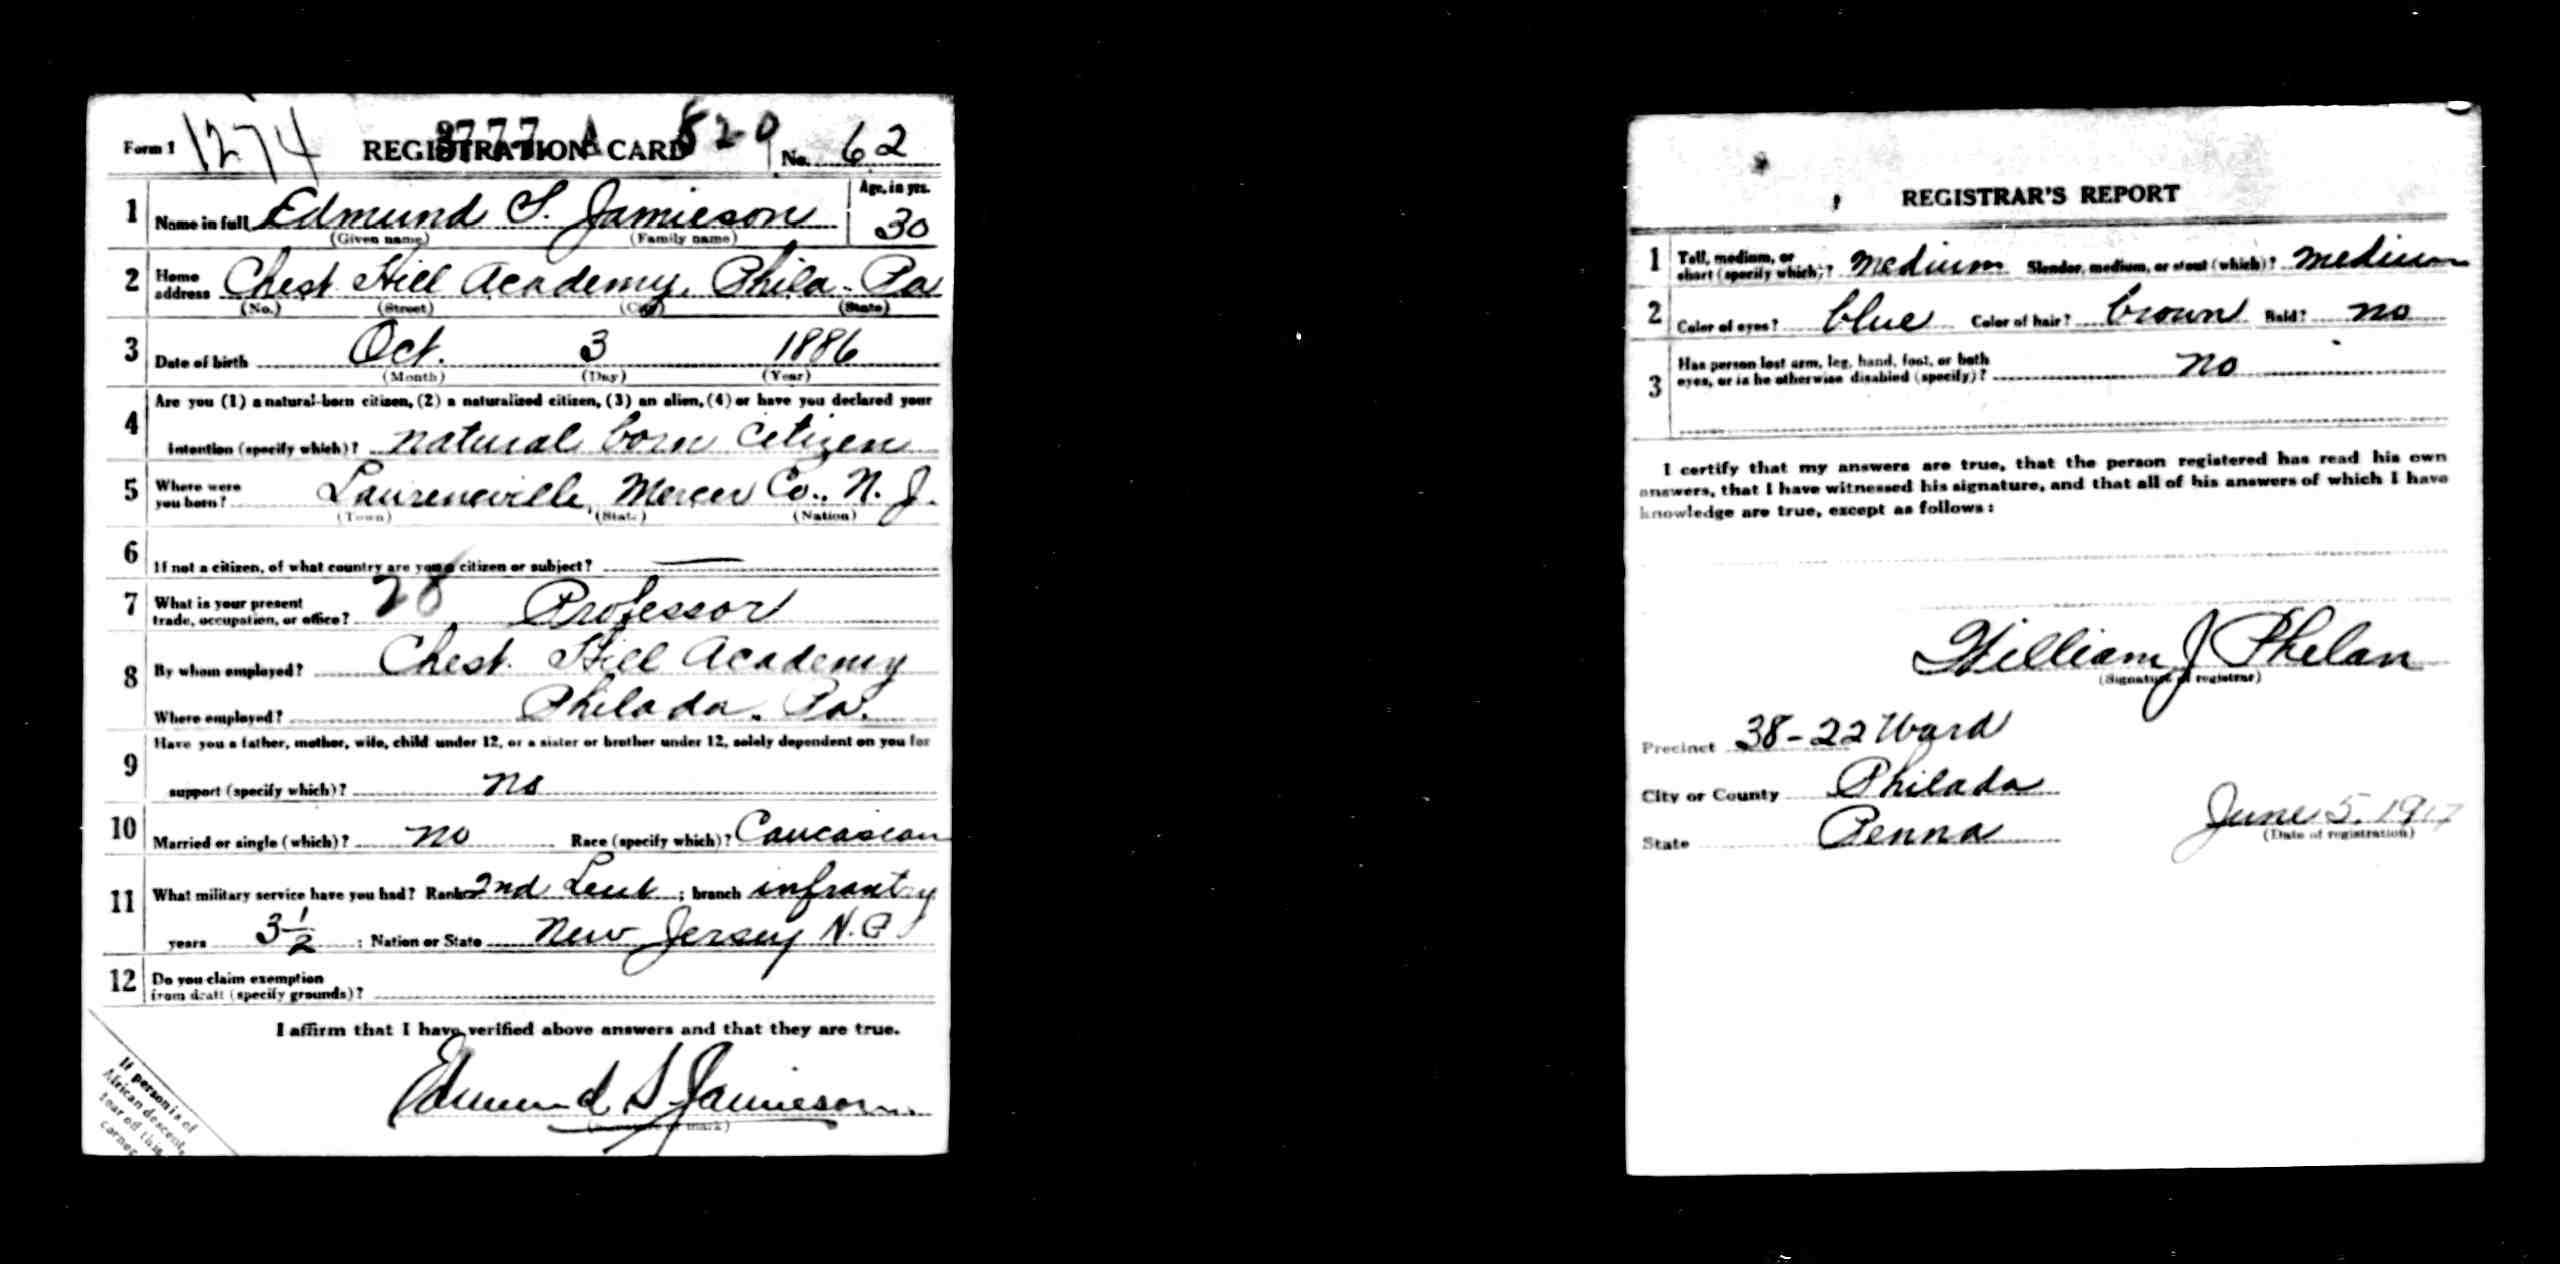 Form 1 1274 REGISTRATION CARD 3777 A 829 No. 62
1 Name in full Edmund S. Jamieson Age, in yrs. 30
(Given name) (Family name)
2 Home address Chest. Hill Academy, Phila. Pa
(No.) (Street) (City) (State)
3 Date of birth Oct. 3 1886
(Month) (Day) (Year)
4 Are you (1) a natural-born citizen, (2) a naturalized citizen, (3) an alien, (4) or have you declared your
intention (specify which)? natural born citizen
5 Where were you born? Laurenceville, Mercer Co., N. J.
(Town) (State) (Nation)
6 If not a citizen, of what country are you a citizen or subject? —
7 What is your present trade, occupation, or office? 28 Professor
8 By whom employed? Chest. Hill Academy
Where employed? Philada. Pa.
9 Have you a father, mother, wife, child under 12, or a sister or brother under 12, solely dependent on you for
support (specify which)? no
10 Married or single (which)? no Race (specify which)? Caucasian
11 What military service have you had? Rank 2nd Leut ; branch infrantry
years 3 1/2 ; Nation or State New Jersey N.G.
12 Do you claim exemption
from draft (specify grounds)?
I affirm that I have verified above answers and that they are true.
Edmund S Jamieson
(Signature or mark)
If person is of
African descent,
tear off this
corner
REGISTRAR'S REPORT
1 Tall, medium, or short (specify which)? medium Slender, medium, or stout (which)? medium
2 Color of eyes? blue Color of hair? brown Bald? no
3 Has person lost arm, leg, hand, foot, or both
eyes, or is he otherwise disabled (specify)? no
I certify that my answers are true, that the person registered has read his own
answers, that I have witnessed his signature, and that all of his answers of which I have
knowledge are true, except as follows:
William J Phelan
(Signature of registrar)
Precinct 38-22 Ward
City or County Philada
State Penna
June 5, 1917
(Date of registration)